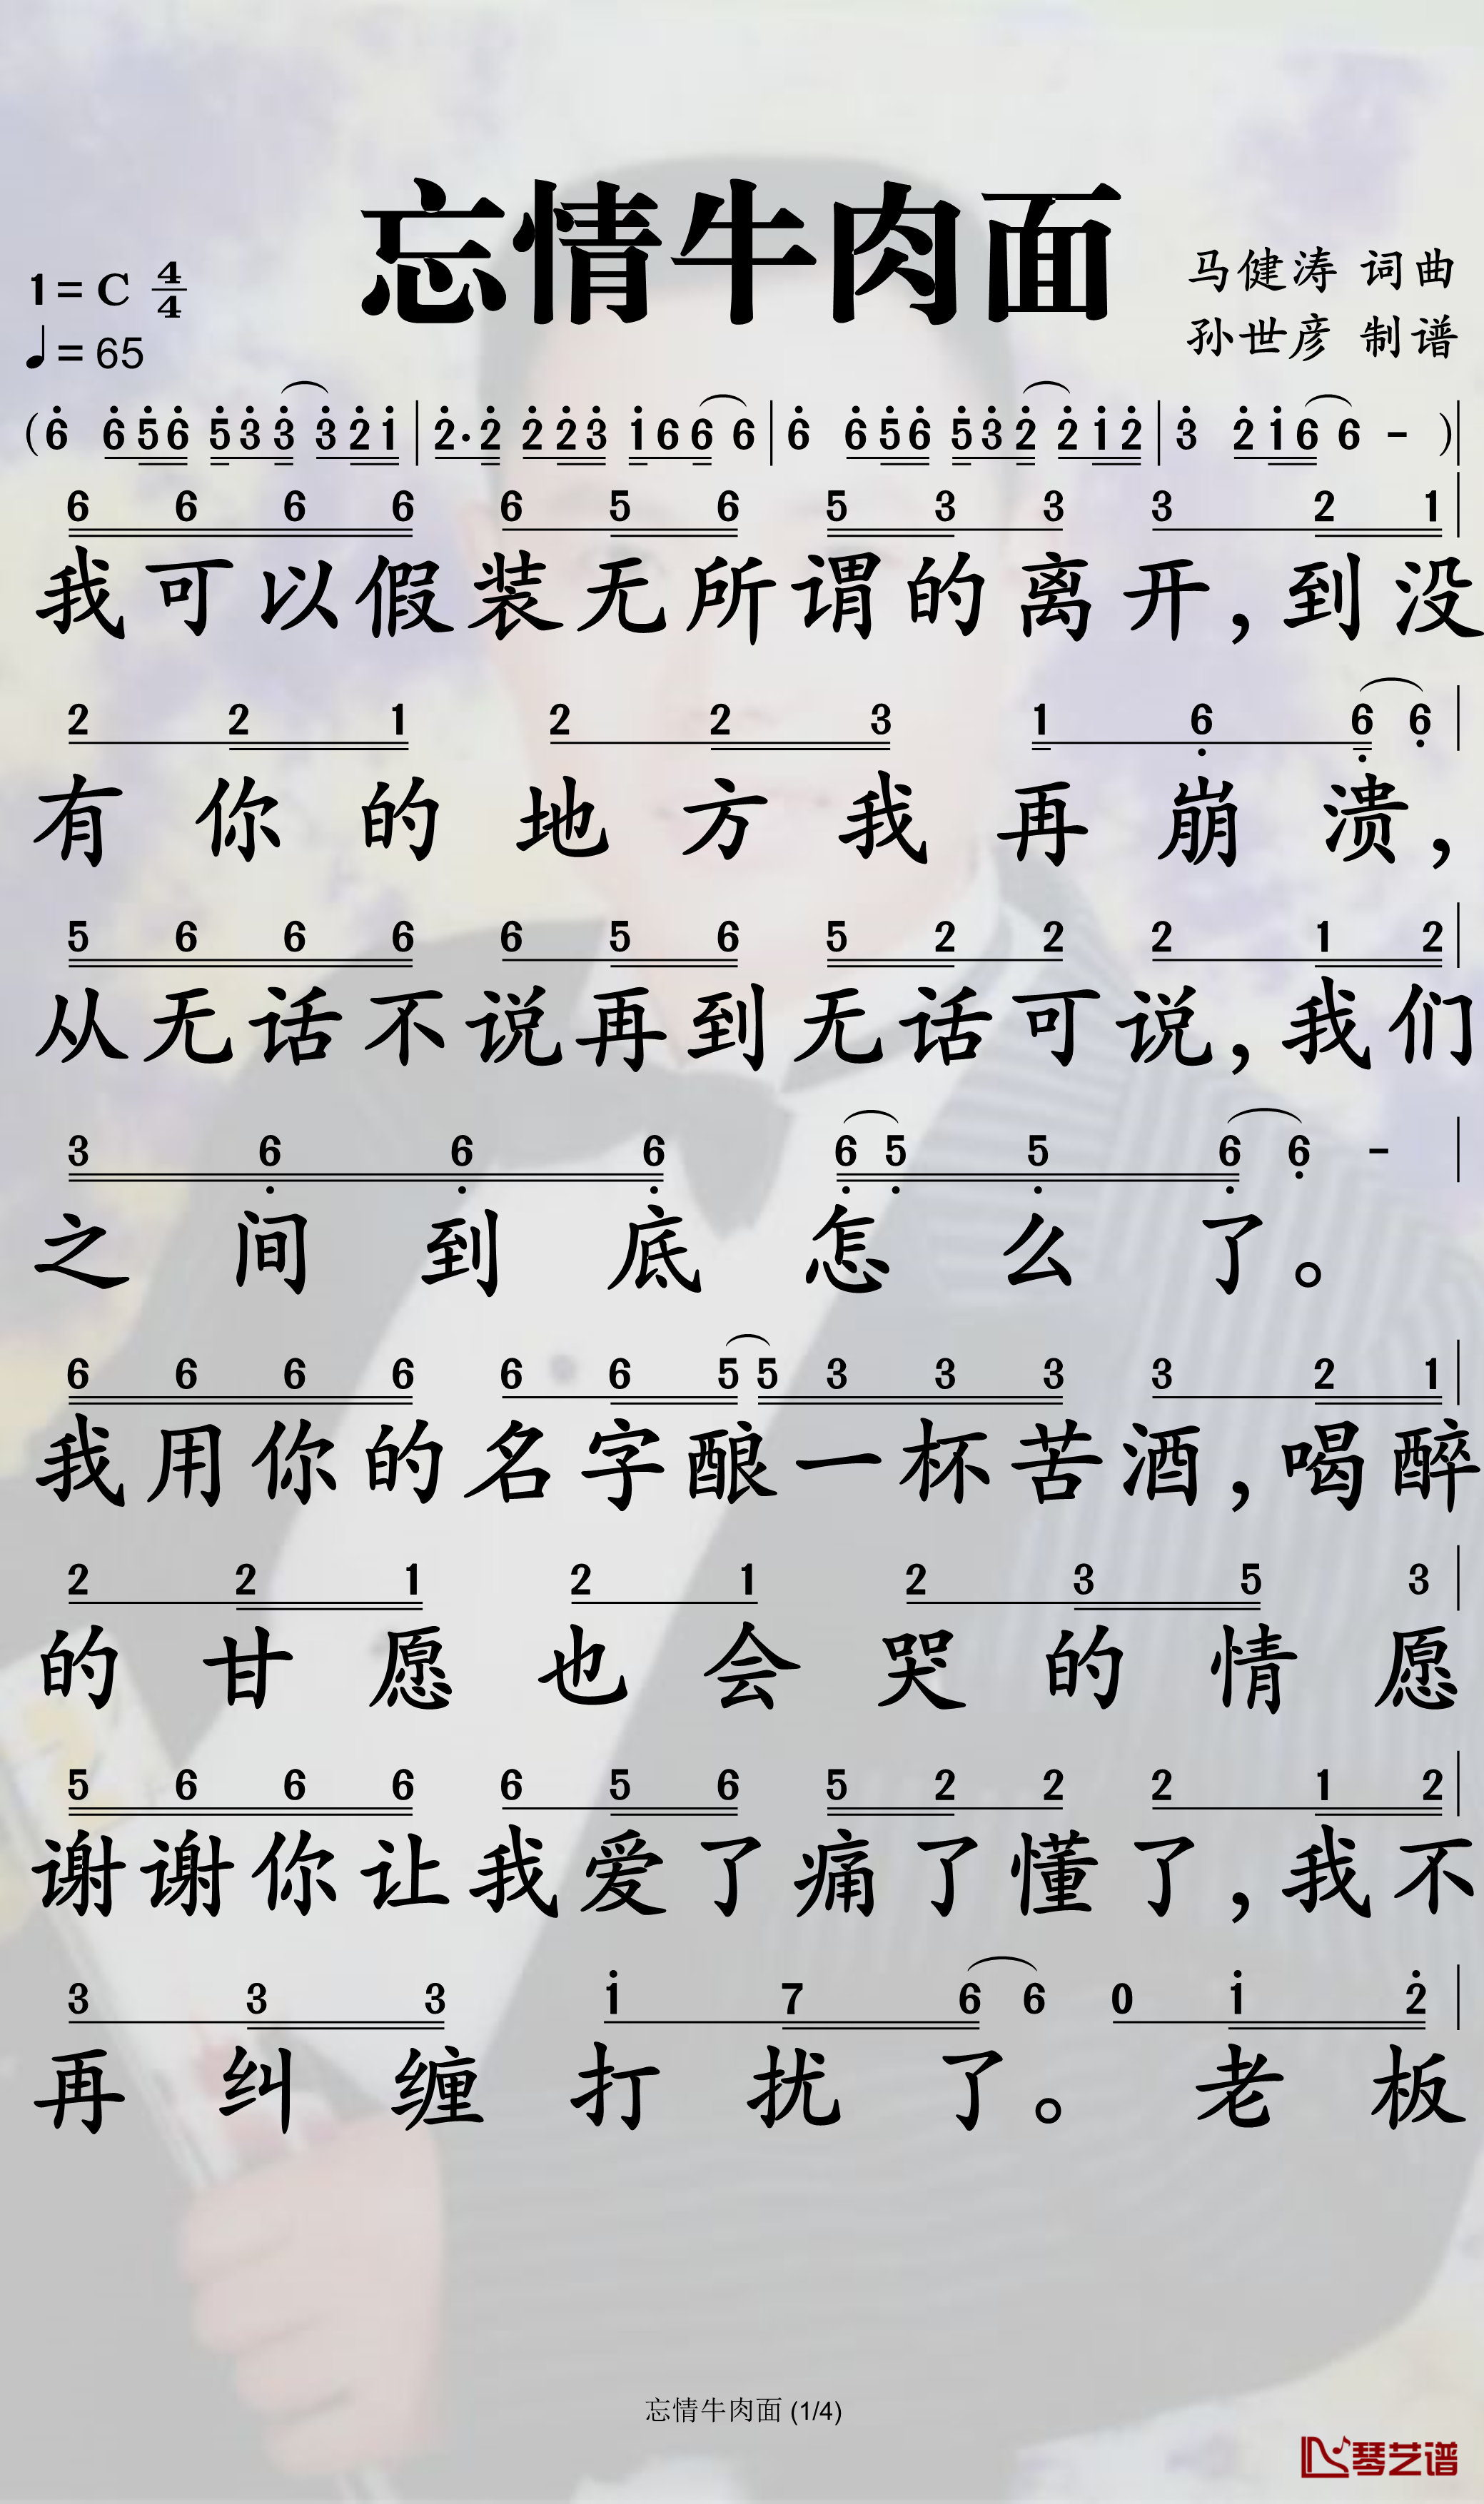 忘情牛肉面
1=C 4/4
马健涛 词曲
♩=65
孙世彦 制谱
(6 656 533 321|2·2 223 166 6|6 656 532 212|3 2166 -)|
6 6 6 6 6 5 6 5 3 3 3 2 1|
我可以假装无所谓的离开,到没
2 2 1 2 2 3 1 6 6 6|
有你的地方我再崩溃,
5 6 6 6 6 5 6 5 2 2 2 1 2|
从无话不说再到无话可说,我们
3 6 6 6 6 5 5 6 6 -|
之间到底怎么了。
6 6 6 6 6 6 5 5 3 3 3 3 2 1|
我用你的名字酿一杯苦酒,喝醉
2 2 1 2 1 2 3 5 3|
的甘愿也会哭的情愿
5 6 6 6 6 5 6 5 2 2 2 1 2|
谢谢你让我爱了痛了懂了,我不
3 3 3 1 7 6 6 0 1 2|
再纠缠打扰了。老板
忘情牛肉面 (1/4)
琴艺谱